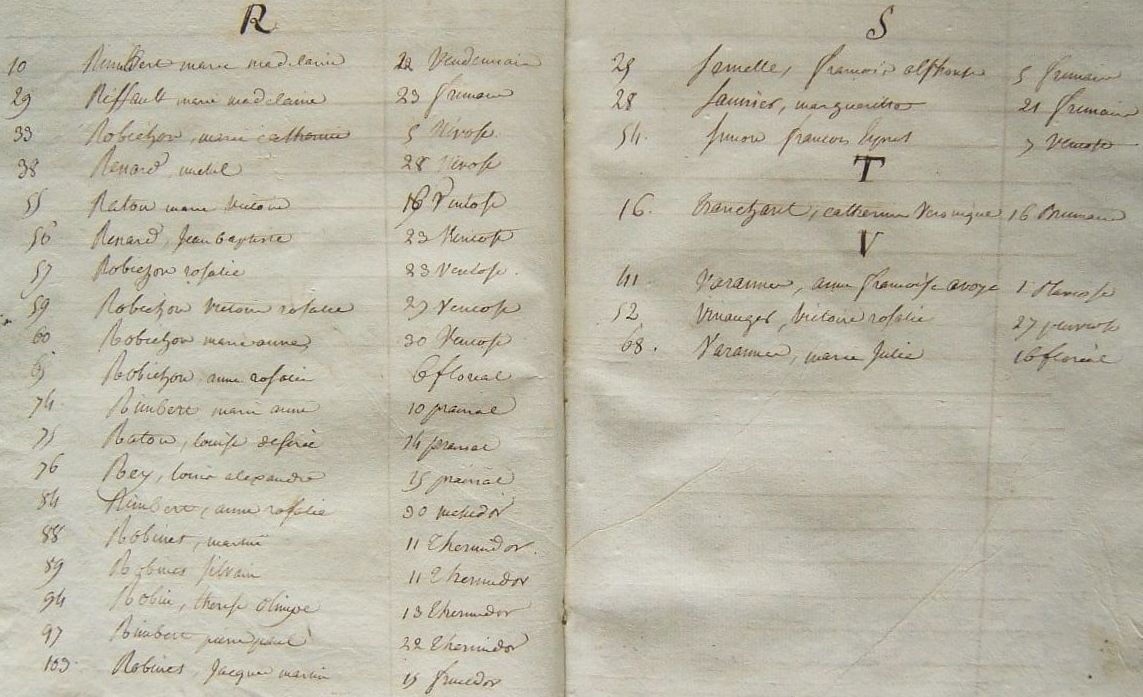 R
10 Rimbert marie madelaine 22 Vendemiair
29 Riffault marie madelaine 23 frimair
33 Robichon, marie catherine 5 Nivose
38 Renard, michel 28 Nivose
55 Raton marie victoire 16 Ventose
56 Renard, Jean baptiste 23 Ventose
57 Robichon rosalie 23 Ventose
59 Robichon victoire rosalie 27 Ventose
60 Robichon marie anne 30 Ventose
65 Robichon, anne rosalie 6 floreal
74 Rimbert marie anne 10 prairial
75 Raton, louise desirée 14 prairial
76 Rey, louis alexandre 15 prairial
84 Rimbert, anne rosalie 30 messidor
88 Robines, martin 11 Thermidor
89 Robines silvain 11 Thermidor
94 Robin, therese olimpe 13 Thermidor
97 Rimbert pierre paul 22 Thermidor
103 Robines, Jacques martin 15 fructidor
S
25 francois alphonse 5 frimair
28 Saunier, margueritte 21 frimair
54 Simon francois 7 Ventose
T
16. Tranchant, catherine Veronique 16 Brumair
V
41 Varannes, anne francoise avoye 1 Pluviose
52 victoire rosalie 27 pluviose
68. Varannes, marie Julie 16 floréal